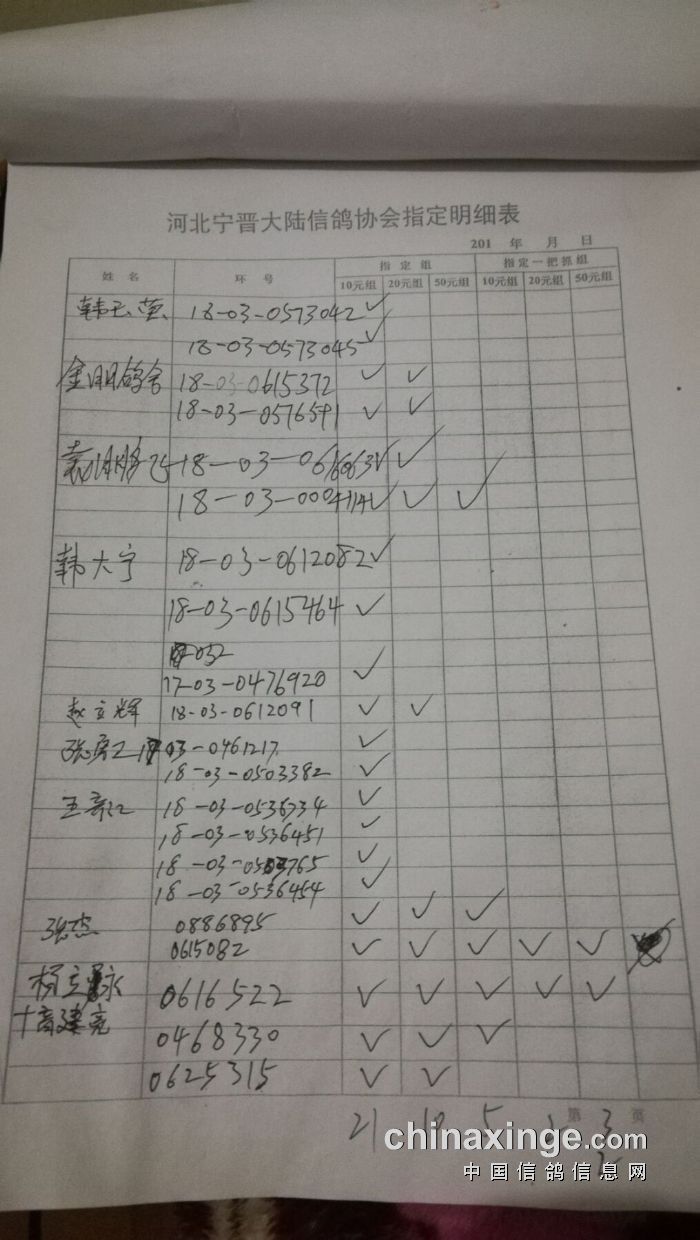 河北宁晋大陆信鸽协会指定明细表
201 年 月 日
姓 名 环 号 指 定 组 指定一把抓组
10元组 20元组 50元组 10元组 20元组 50元组
韩玉莹 18-03-0573042 ✓
18-03-0573045 ✓
金明鸽舍 18-03-0615372 ✓ ✓
18-03-0576591 ✓ ✓
18-03-0616063 ✓ ✓
18-03-0004114 ✓ ✓ ✓
韩大宁 18-03-0612082 ✓
18-03-0615464 ✓
17-03-0476920 ✓
赵立辉 18-03-0612091 ✓ ✓
03-0461217 ✓
18-03-0503382 ✓
王彦江 18-03-0536734 ✓
18-03-0536451 ✓
18-03-0503765 ✓
18-03-0536454 ✓
张杰 0886895 ✓ ✓ ✓
0615082 ✓ ✓ ✓ ✓ ✓
杨立永 0616522 ✓ ✓ ✓ ✓ ✓
十高建亮 0468330 ✓ ✓ ✓
0625315 ✓ ✓
21 10 5 第 3 页
2
chinaxinge.com
中国信鸽信息网